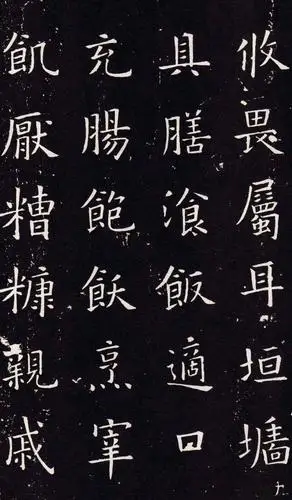 攸畏屬耳垣墻
具膳湌飯適口
充腸飽飫烹宰
飢厭糟糠親戚